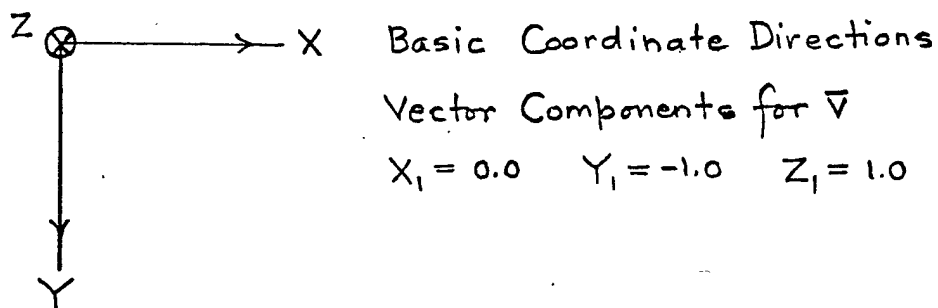 Z X Basic Coordinate Directions
Vector Components for V̄
X₁ = 0.0 Y₁ = -1.0 Z₁ = 1.0
Y